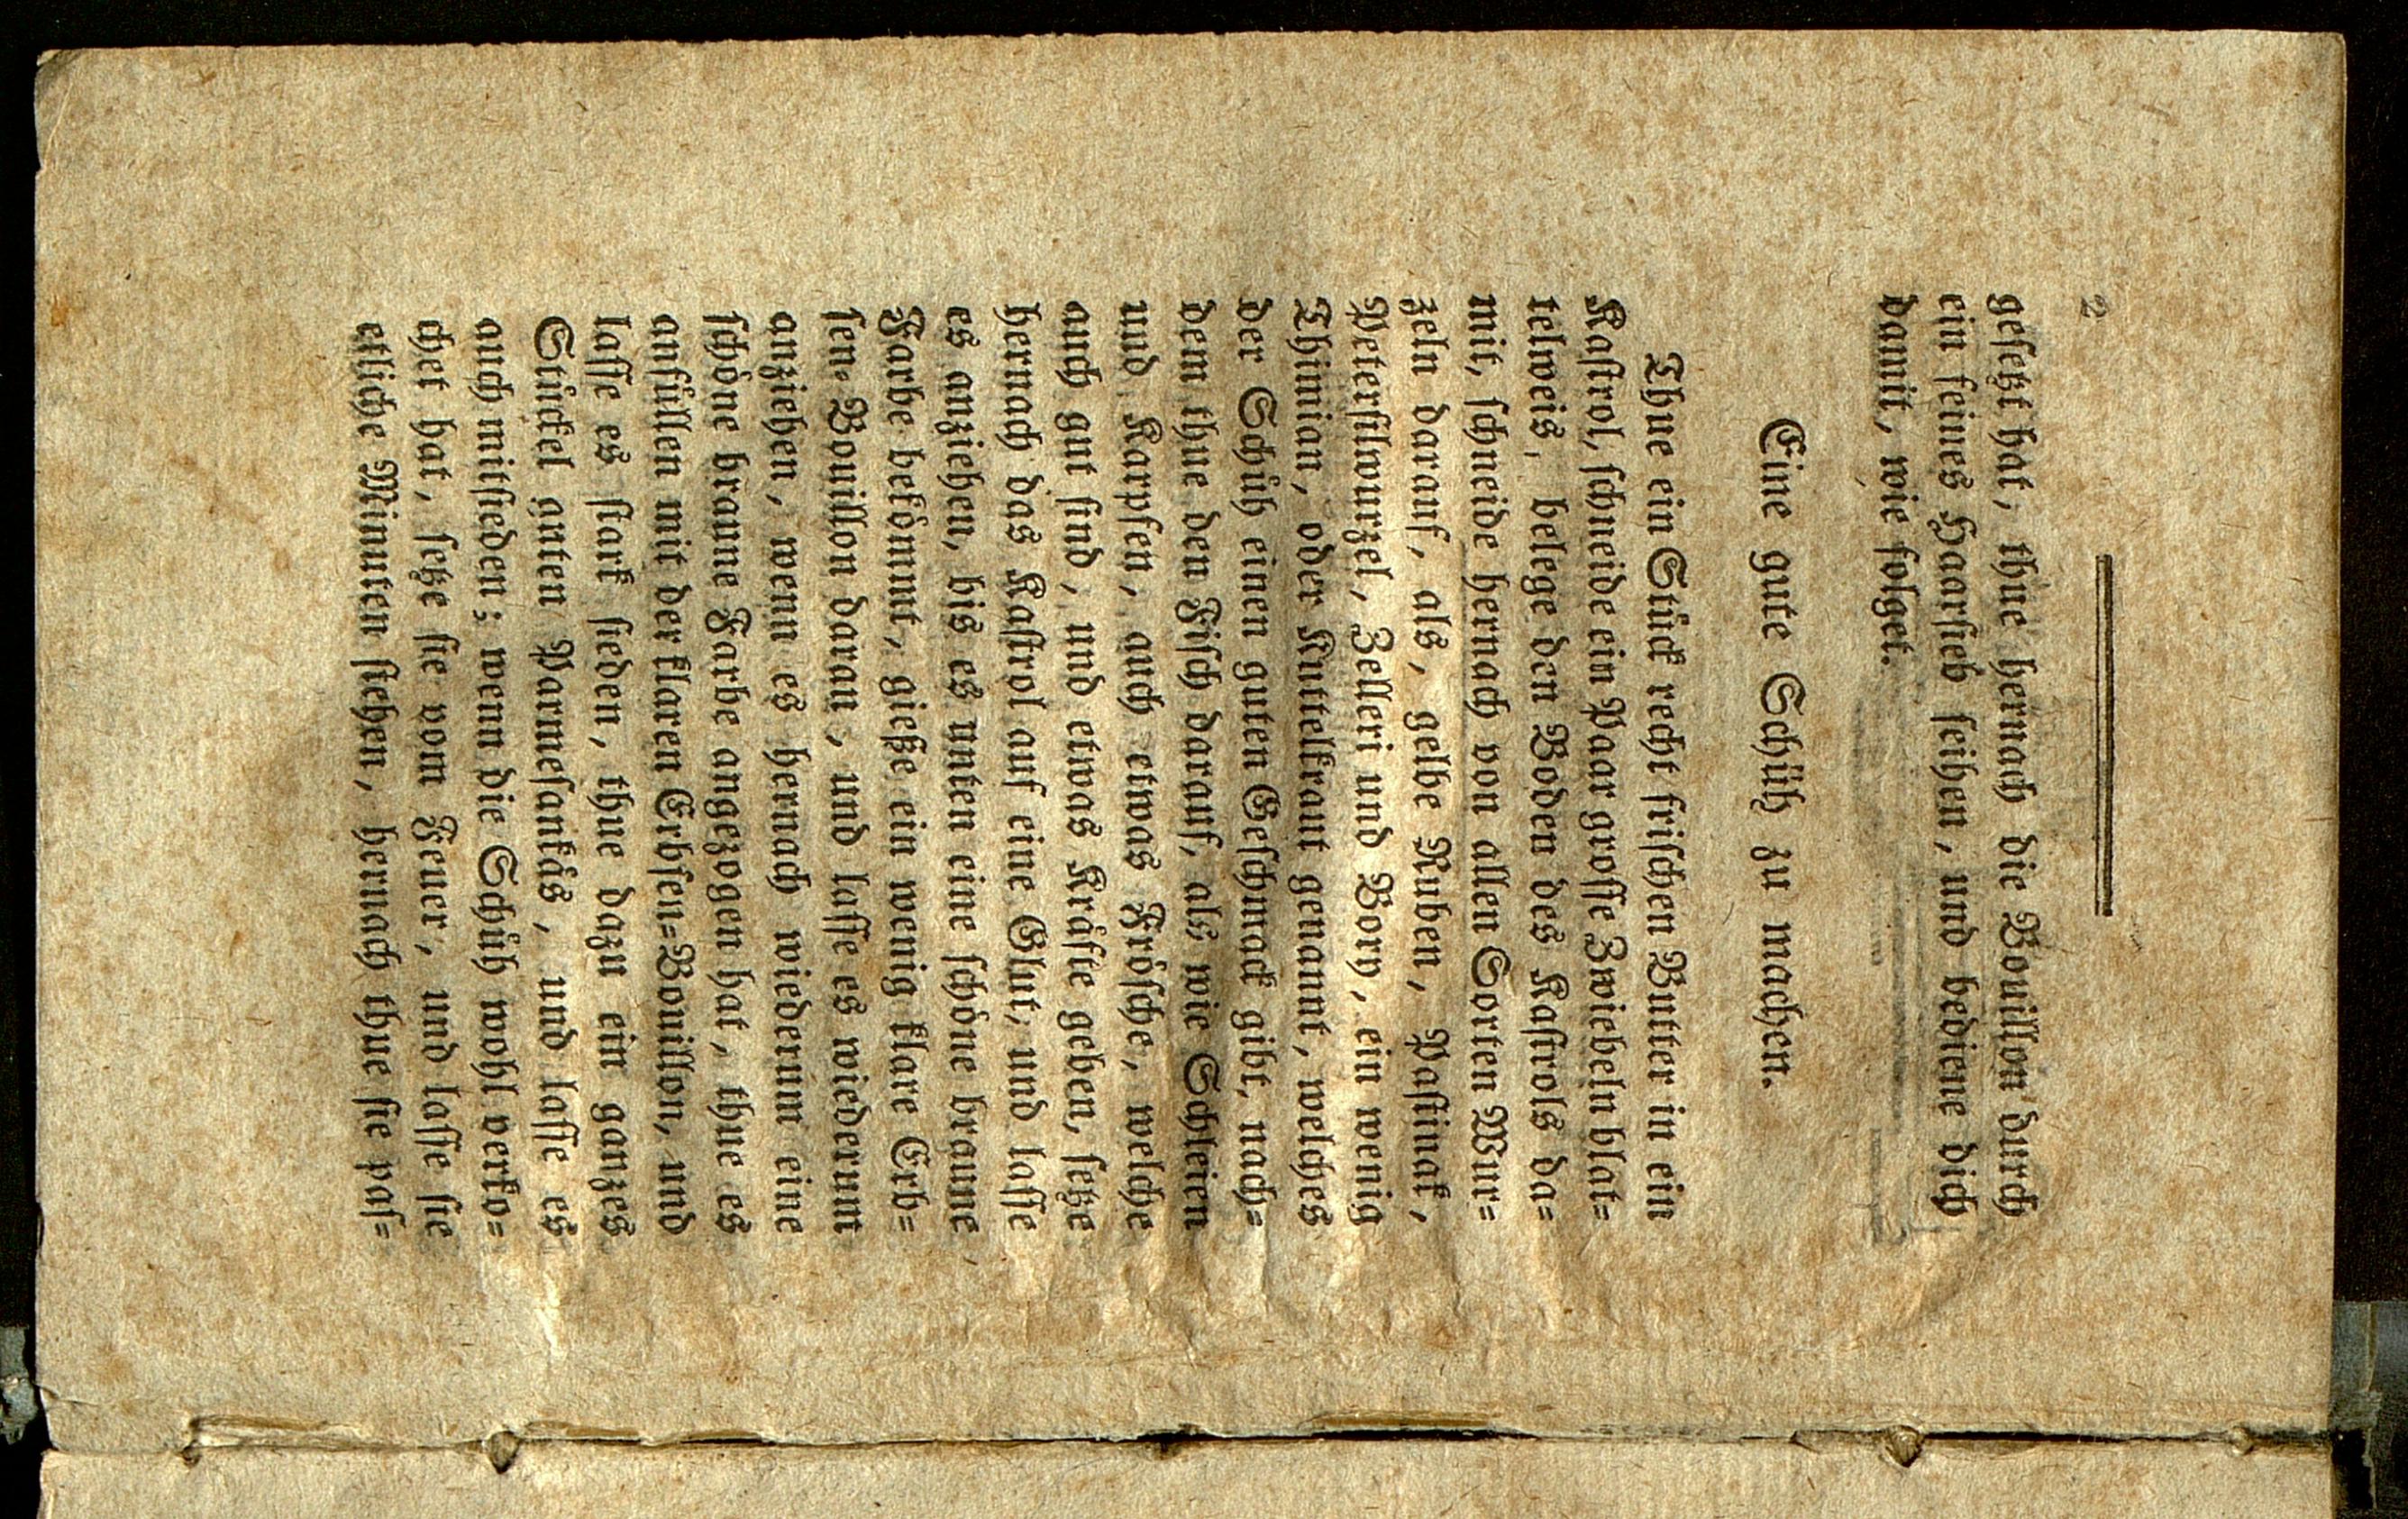 2
geſetzt hat, thue hernach die Bouillon durch
ein feines Haarſieb ſeihen, und bediene dich
damit, wie folget.
Eine gute Schüh zu machen.
Thue ein Stuͤck recht friſchen Butter in ein
Kaſtrol, ſchneide ein Paar groſſe Zwiebeln blat=
telweis, belege den Boden des Kaſtrols da=
mit, ſchneide hernach von allen Sorten Wur=
zeln darauf, als, gelbe Ruben, Paſtinak,
Peterſilwurzel, Zelleri und Pory, ein wenig
Thimian, oder Kuttelkraut genannt, welches
der Schuͤh einen guten Geſchmack gibt, nach=
dem thue den Fiſch darauf, als wie Schleien
und Karpfen, auch etwas Froͤſche, welche
auch gut ſind, und etwas Kraͤfte geben, ſetze
hernach das Kaſtrol auf eine Glut, und laſſe
es anziehen, bis es unten eine ſchoͤne braune
Farbe bekoͤmmt, gieße ein wenig klare Erb=
ſen=Bouillon daran, und laſſe es wiederum
anziehen, wenn es hernach wiederum eine
ſchoͤne braune Farbe angezogen hat, thue es
anfuͤllen mit der klaren Erbſen=Bouillon, und
laſſe es ſtark ſieden, thue dazu ein ganzes
Stuͤckel guten Parmeſankaͤs, und laſſe es
auch mitſieden; wenn die Schuͤh wohl verko=
chet hat, ſetze ſie vom Feuer, und laſſe ſie
etliche Minuten ſtehen, hernach thue ſie paſ=